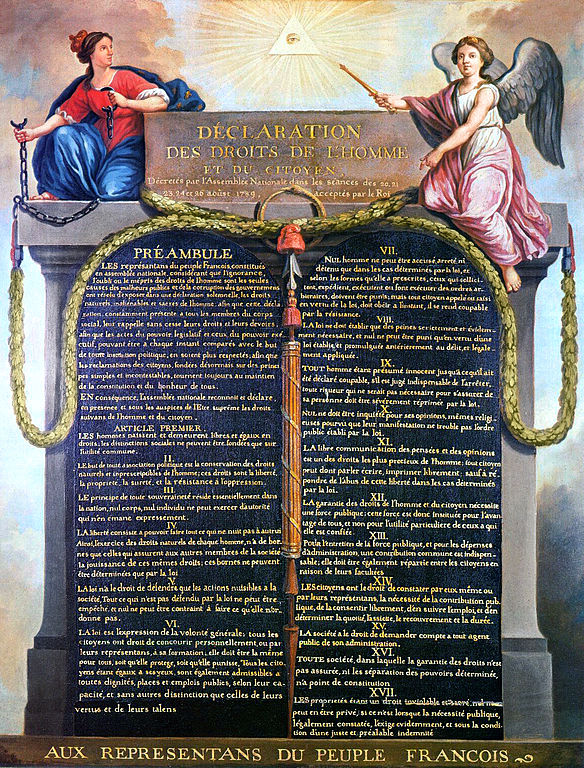 DÉCLARATION
DES DROITS DE L'HOMME
ET DU CITOYEN,
Décretés par l'Assemblée Nationale dans les séances des 20, 21
23, 24 et 26 août 1789, acceptés par le Roi
PRÉAMBULE
LES représantans du peuple Francois, constitués
en assemblée nationale, considérant que l'ignorance,
l'oubli ou le mépris des droits de l'homme sont les seules
causes des malheurs publics et de la corruption des gouvernemens
ont résolu d'exposer dans une déclaration solemnelle, les droits
naturels, inaliénables et sacrés de l'homme; afin que cette décla-
ration, constamment présente a tous les membres du corps
social, leur rappelle sans cesse leurs droits et leurs devoirs;
afin que les actes du pouvoir législatif et ceux du pouvoir exé-
cutif, pouvant être a chaque instant comparés avec le but
de toute institution politique, en soient plus respectés; afin que
les reclamations des citoyens, fondées désormais sur des prinsci-
pes simples et incontestables, tournent toujours au maintien
de la constitution et du bonheur de tous.
EN conséquence, l'assemblée nationale reconnoit et déclare,
en presence et sous les auspices de l'Etre suprême les droits
suivans de l'homme et du citoyen.
ARTICLE PREMIER.
LES hommes naissent et demeurent libres et égaux en
droits; les distinctions sociales ne peuvent être fondées que sur
l'utilité commune.
II.
LE but de toute association politique est la conservation des droits
naturels et inprescriptibles de l'homme; ces droits sont la liberté,
la propriété, la sureté, et la résistance à l'oppression.
III.
LE principe de toute souveraineté réside essentiellement dans
la nation, nul corps, nul individu ne peut exercer d'autorité
qui n'en emane expressément.
IV.
LA liberté consiste a pouvoir faire tout ce qui ne nuit pas à autrui
Ainsi, l'exercice des droits naturels de chaque homme, n'a de bor-
nes que celles qui assurent aux autres membres de la société
la jouissance de ces mêmes droits; ces bornes ne peuvent
être déterminées que par la loi
V.
LA loi n'a le droit de défendre que les actions nuisibles a la
société. Tout ce qui n'est pas défendu par la loi ne peut être
empêché, et nul ne peut être contraint à faire ce qu'elle n'or-
donne pas.
VI.
LA loi est l'expression de la volonté générale; tous les
citoyens ont droit de concourir personnellement, ou par
leurs représentans, à sa formation; elle doit être la même
pour tous, soit qu'elle protege, soit qu'elle punisse, Tous les cito-
yens étant égaux à ses yeux, sont également admissibles a
toutes dignités, places et emplois publics, selon leur ca-
pacité, et sans autres distinction que celles de leurs
vertus et de leurs talens
VII.
NUL homme ne peut être accusé, arreté, ni
détenu que dans les cas déterminés par la loi, et
selon les formes qu'elle a prescrites, ceux qui sollici-
tent, expédient, exécutent ou font exécuter des ordres ar-
bitraires, doivent être punis; mais tout citoyen appelé ou saisi
en vertu de la loi, doit obéir a l'instant, il se rend coupable
par la résistance.
VIII.
LA loi ne doit établir que des peines strictement et évidem-
ment nécessaire, et nul ne peut être puni qu'en vertu d'une
loi établie et promulguée antérierement au délit, et légale-
ment appliquée.
IX.
TOUT homme étant présumé innocent jusqu'a ce qu'il ait
été déclaré coupable, s'il est jugé indispensable de l'arrêter,
toute rigueur qui ne serait pas nécessaire pour s'assurer de
sa personne doit être sévèrement réprimée par la loi.
X.
NUL ne doit être inquiété pour ses opinions, mêmes religi-
euses pourvu que leur manifestation ne trouble pas l'ordre
public établi par la loi.
XI.
LA libre communication des pensées et des opinions
est un des droits les plus precieux de l'homme; tout citoyen
peut dont parler écrire, imprimer librement; sauf à ré-
pondre de l'abus de cette liberté dans les cas déterminés
par la loi.
XII.
LA garantie des droits de l'homme et du citoyen nécessite
une force publique; cette force est donc instituée pour l'avan-
tage de tous, et non pour l'utilité particuliere de ceux a qui
elle est confiée.
XIII.
POUR l'entretien de la force publique, et pour les dépenses
d'administration, une contribution commune est indispen-
sable; elle doit être également répartie entre les citoyens en
raison de leurs facultées
XIV.
LES citoyens ont le droit de constater par eux même ou
par leurs représentans, la nécessité de la contribution pub-
lique, de la consentir librement, d'en suivre l'emploi, et d'en
déterminer la quotité, l'assiette, le recouvrement et la durée.
XV.
LA société a le droit de demander compte a tout agent
public de son administration.
XVI.
TOUTE société, dans laquelle la garantie des droits n'est
pas assurée, ni les séparation des pouvoirs déterminée,
n'a point de constitution
XVII.
LES proprietés étant un droit inviolable et sacré, nul ne
peut en être privé, si ce n'est lorsque la nécessité publique,
légalement constatée, l'exige évidemment, et sous la condi-
tion d'une juste et préalable indemnité
AUX REPRESENTANS DU PEUPLE FRANCOIS